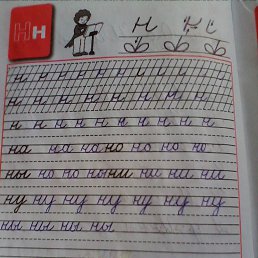 Нн
Н Н с
н н н н н н н н н н
н н н н н н н н н
н н н н н н н н н н
на на на но но но но
ны но но ны ни ни ни ни
ну ну ну ну ну ну ну
ны ны ны ны